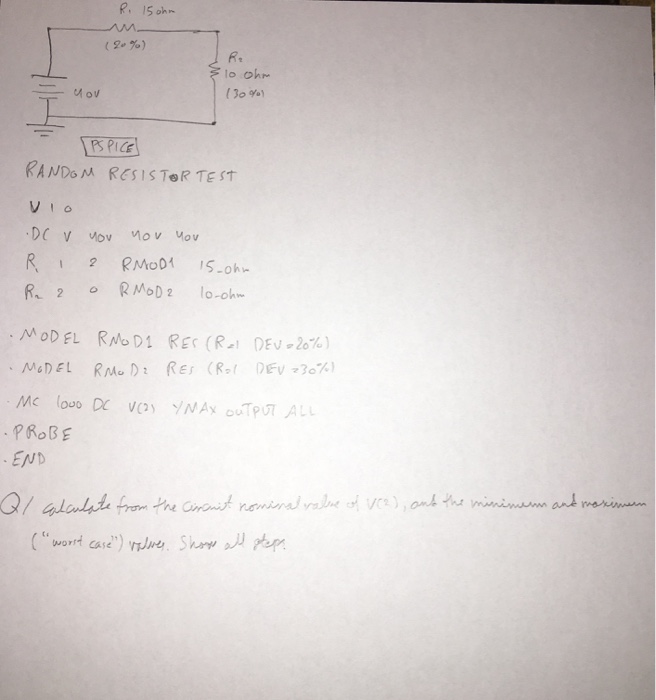 R1 15 ohm
(20%)
R2
10 ohm
(30%)
40V
PSPICE
RANDOM RESISTOR TEST
V 1 0
.DC V 40V 40V 40V
R1 1 2 RMOD1 15-ohm
R2 2 0 RMOD2 10-ohm
.MODEL RMOD1 RES (R=1 DEV=20%)
.MODEL RMOD2 RES (R=1 DEV=30%)
.MC 1000 DC V(2) YMAX OUTPUT ALL
.PROBE
.END
Q/ calculate from the circuit nominal value of V(2), and the minimum and maximum
("worst case") values. Show all steps.